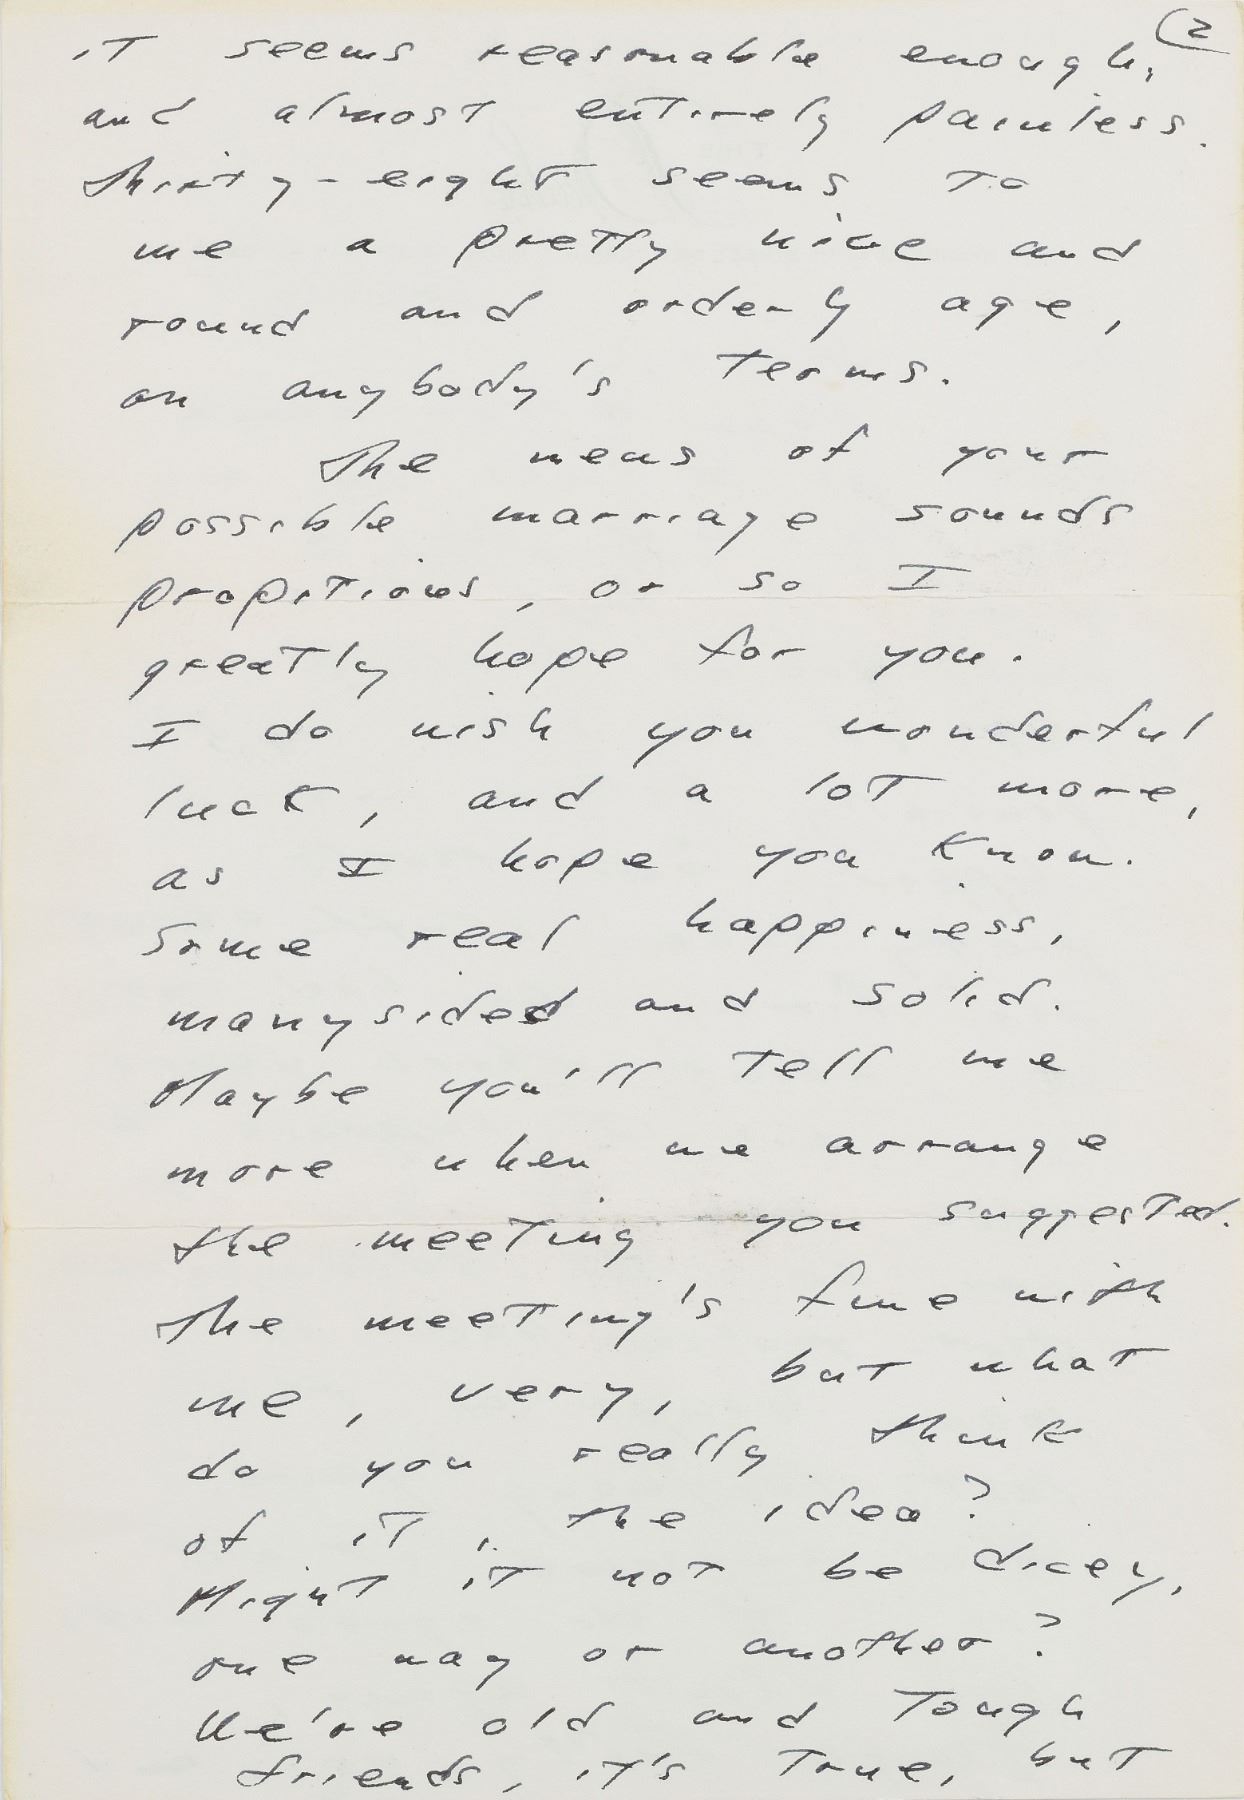 (2
it seems reasonable enough,
and almost entirely painless.
Thirty-eight seems to
me a pretty nice and
round and orderly age,
on anybody's terms.
The news of your
possible marriage sounds
propitious, or so I
greatly hope for you.
I do wish you wonderful
luck, and a lot more,
as I hope you know.
Some real happiness,
manysided and solid.
Maybe you'll tell me
more when we arrange
the meeting you suggested.
The meeting's fine with
me, very, but what
do you really think
of it, the idea?
Might it not be dicey,
one way or another?
We're old and tough
friends, it's true, but